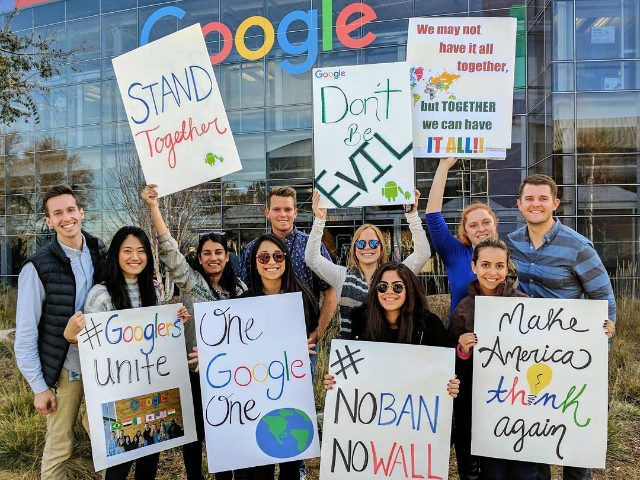 Google
STAND
Together
Google
Don't
Be
EVIL
We may not
have it all
together,
but TOGETHER
we can have
IT ALL!!
#Googlers
UNITE
One
Google
One
#
NOBAN
NOWALL
Make
America
thnk
again